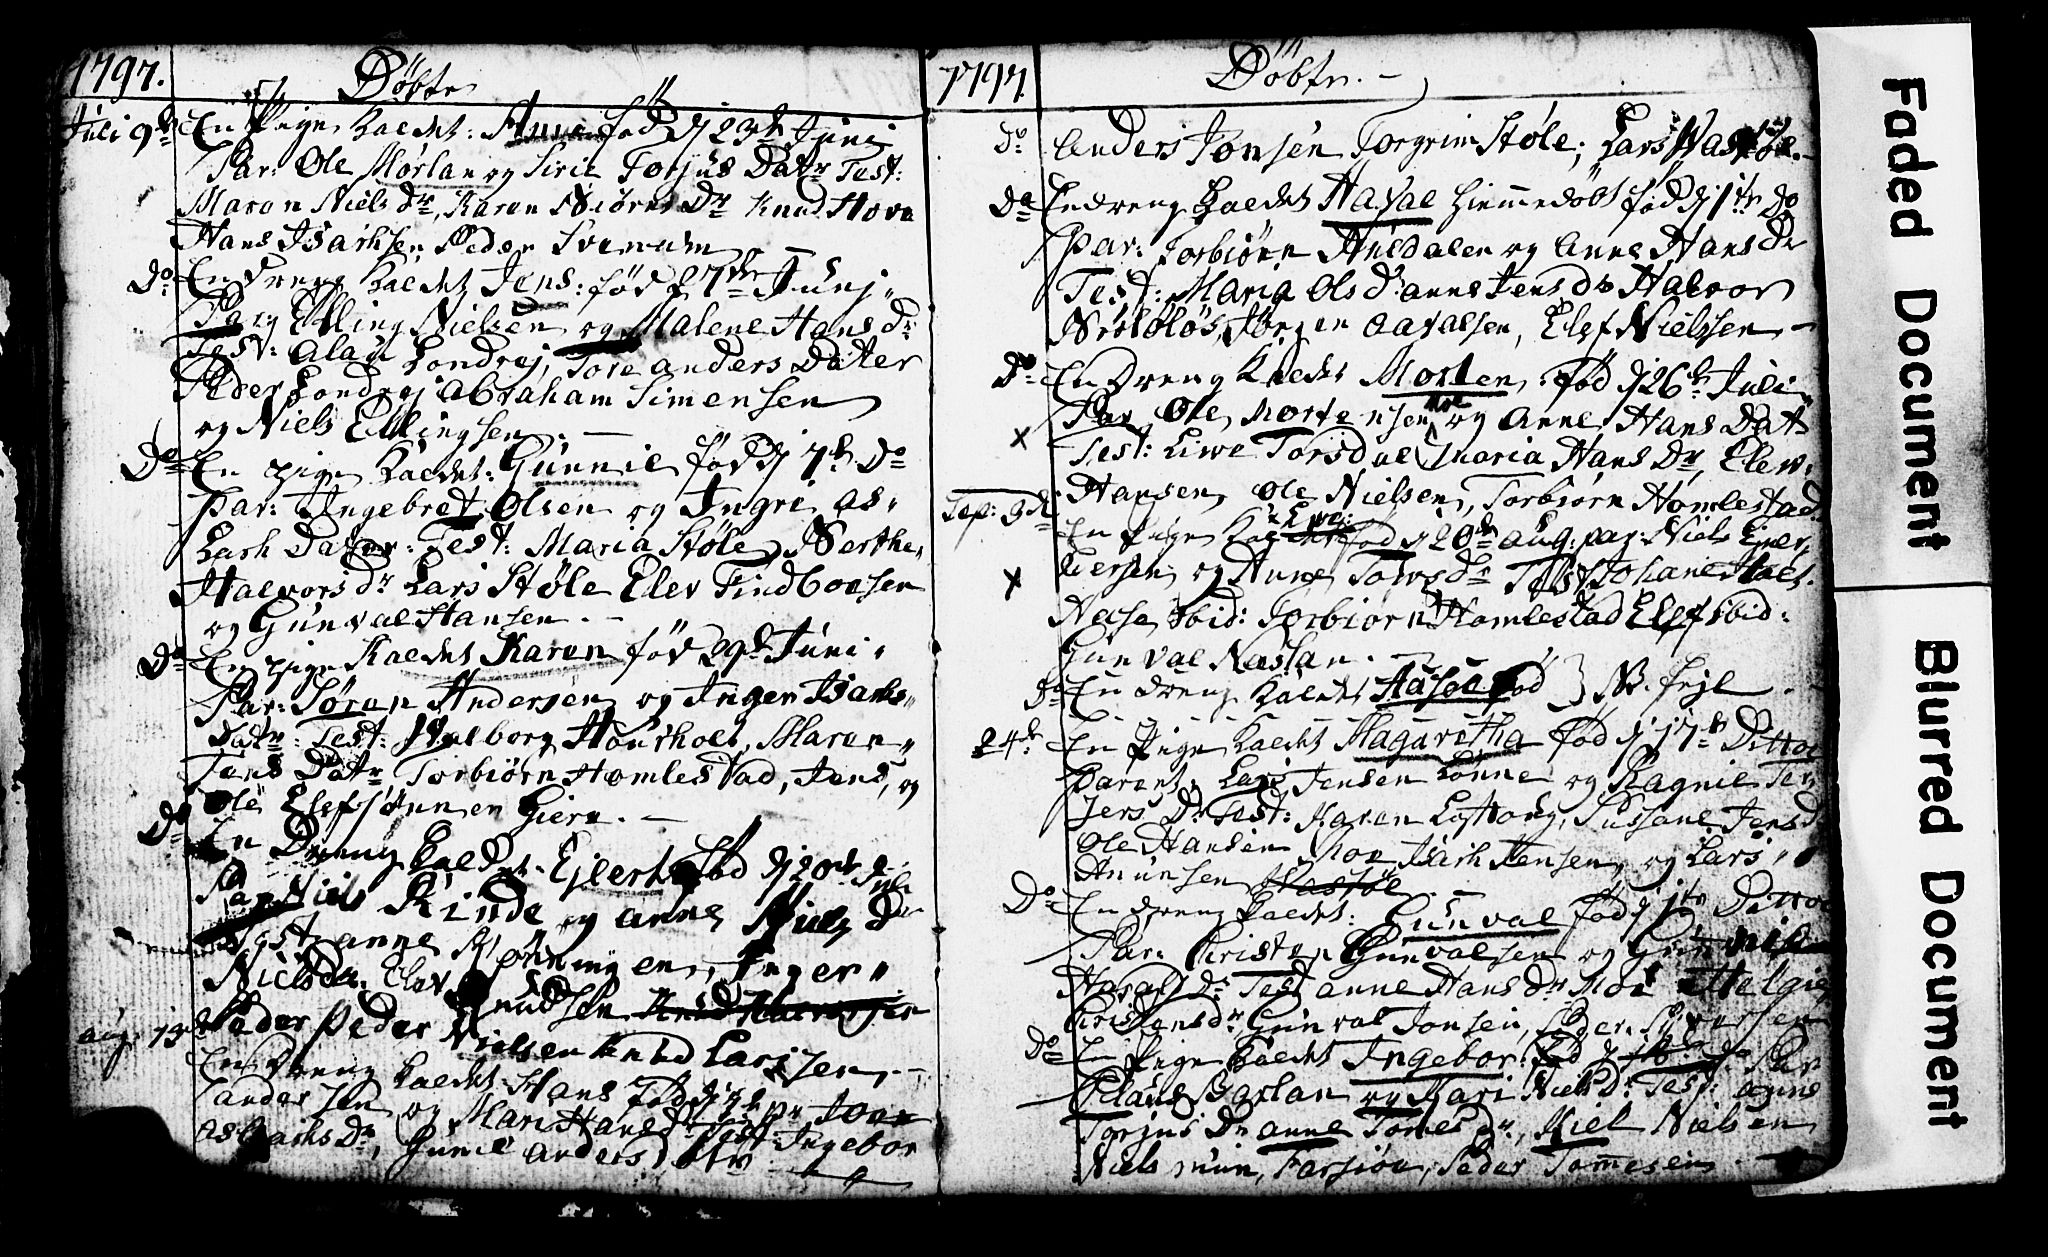 1797. Döbte
Juli 9de En Pige kaldet: Anne fød d 23de Juni
Par: Ole Mörlan og Siric Torjus Datr Test:
Maren Niels dr, Karen Biörns Dr Knud Hove
Hans Isachsen, Peder Svenum
Do En dreng kaldet Jens: fød 27de Junj
Par: Elling Nielsen og Malene Hans dr
Test: Alau Londvej, Tore anders Dater
Peder Londvej Abraham Simensen
og Niels Ellingsen. —
Do En pige kaldet: Gunnil fød d 7de Do
Par: Ingebret Olsen og Ingri As-
lach Dater: Test: Maria Støle, Berthe
Halvors dr Lars Støle Elev Findboesen
og Gunval Hansen. –
Do En pige Kaldet Karen fød 29de Juni
Par: Søren Andersen og Inger Isachs-
Datr: Test: Valborg Maren
Jens Datr Torbiørn Homlestad, Jens, og
Ole Elefsønner Giere. —
Do En Dreng kaldet Ejlert fød d 20de
Par Niels Rinde og anne Niels Dr
Test: anne Inger
Niels dr. Elev Knudsen
aug: 13de Peder Peder Nielsen Knud Larssen –
En Dreng kaldet: Hans fød d par Joen
andersen og Mari Hans dr Test: Ingebor
Aslachs Dr, Gunil anders Datr
1797 Döbte. –
Do Anders Jonsen Torgrim Støle; Lars
Do En dreng kaldet Haval hiemmedöbt fød d 1te do
Par: Torbiörn og Anne Hans Dr
Test: Maria Ols dr. anne Jens dr Halvor
Jörgen Aavalsen, Elef Nielssen –
Do En Dreng Kaldet Morten, fød d 26de Juli
Par Ole Mortensen Moe og Anne Hans Datr
x Test: Live Torisdal Maria Hans Dr, Elev
Hansen, Ole Nielsen, Torbiørn Homlestad.
Sep: 3di En Pige Kaldet Live: fød d 20de aug: par: Niels Ejver
x og Anne Tovs dr Test Johane
ibid: Torbiorn Homlestad Elef ibid:
Gunval Næslan. –
Do En dreng kaldet Aasol fød } NB. fejl –
24de En Pige kaldet Magaritha fød d 17de Dittoe
Parent: Lars Jensen Lönne og Ragnil Ter-
jers Dr Test: Maren Susane Jens dr
Ole Hansen Moe Isach Jensen, og Lars
Anunsen
Do En dreng kaldet: Gunval fød d 1te Dittoe
Par: Christen Gunvalsen og Gunnild
Harals Dr Test anne Hans dr Moe Helgie
Christensdr, Gunval Jonsen, Peder
Do En Pige kaldet Ingebor: fød d do Par
Claus Barlan og Mari Niels Dr Test: anne
Torjus Dr anne Tomes dr, Niel Nielsen
Niels Farsiöe, Peder Tommesen
Faded Document
Blurred Document